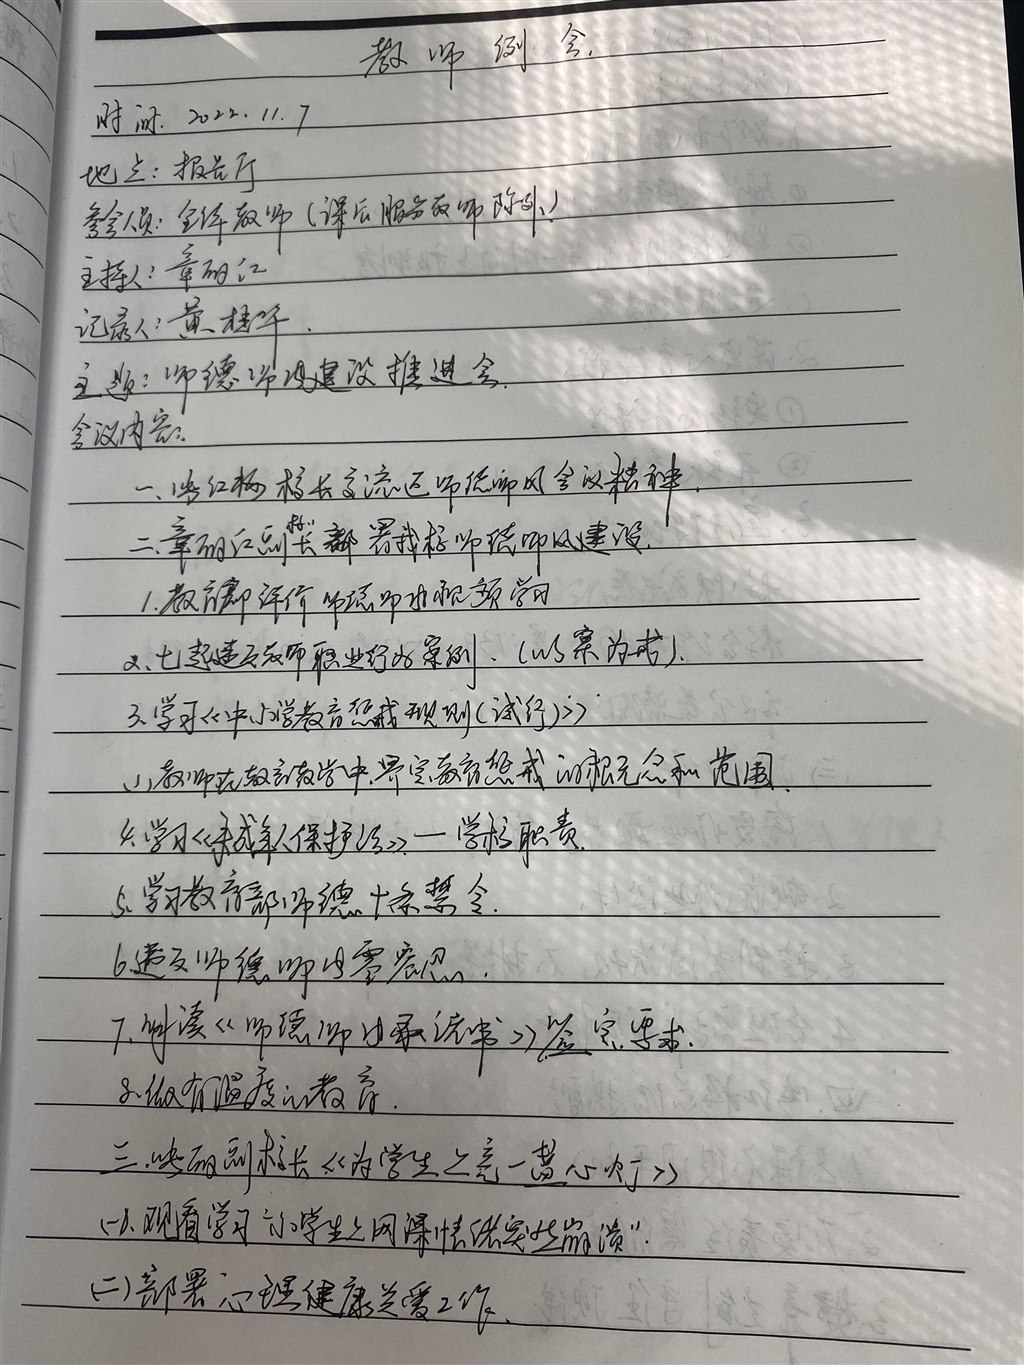 教师例会.
时间. 2022.11.7
地点: 报告厅
参会人员: 全体教师 (课后服务教师除外)
主持人: 章丽江
记录人: 黄
主题: 师德师风建设推进会.
会议内容:
一、红梅校长交流区师德师风会议精神.
二、章丽江副校长部署我校师德师风建设.
1. 教育部评价师德师风视频学习
2. 七起违反教师职业行为案例. (以案为戒).
3. 学习《中小学教育惩戒规则(试行)》
(1) 教师在教育教学中. 界定教育惩戒的概念和范围.
4. 学习《未成年人保护法》. — 学校职责.
5. 学习教育部师德十条禁令.
6. 违反师德师风零容忍.
7. 解读《师德师风承诺书》签定要求.
8. 做有温度的教育.
三. 丽副校长《为学生上亮一盏心灯》
(一). 观看学习 "小学生上网课情绪突然崩溃".
(二) 部署心理健康关爱工作.